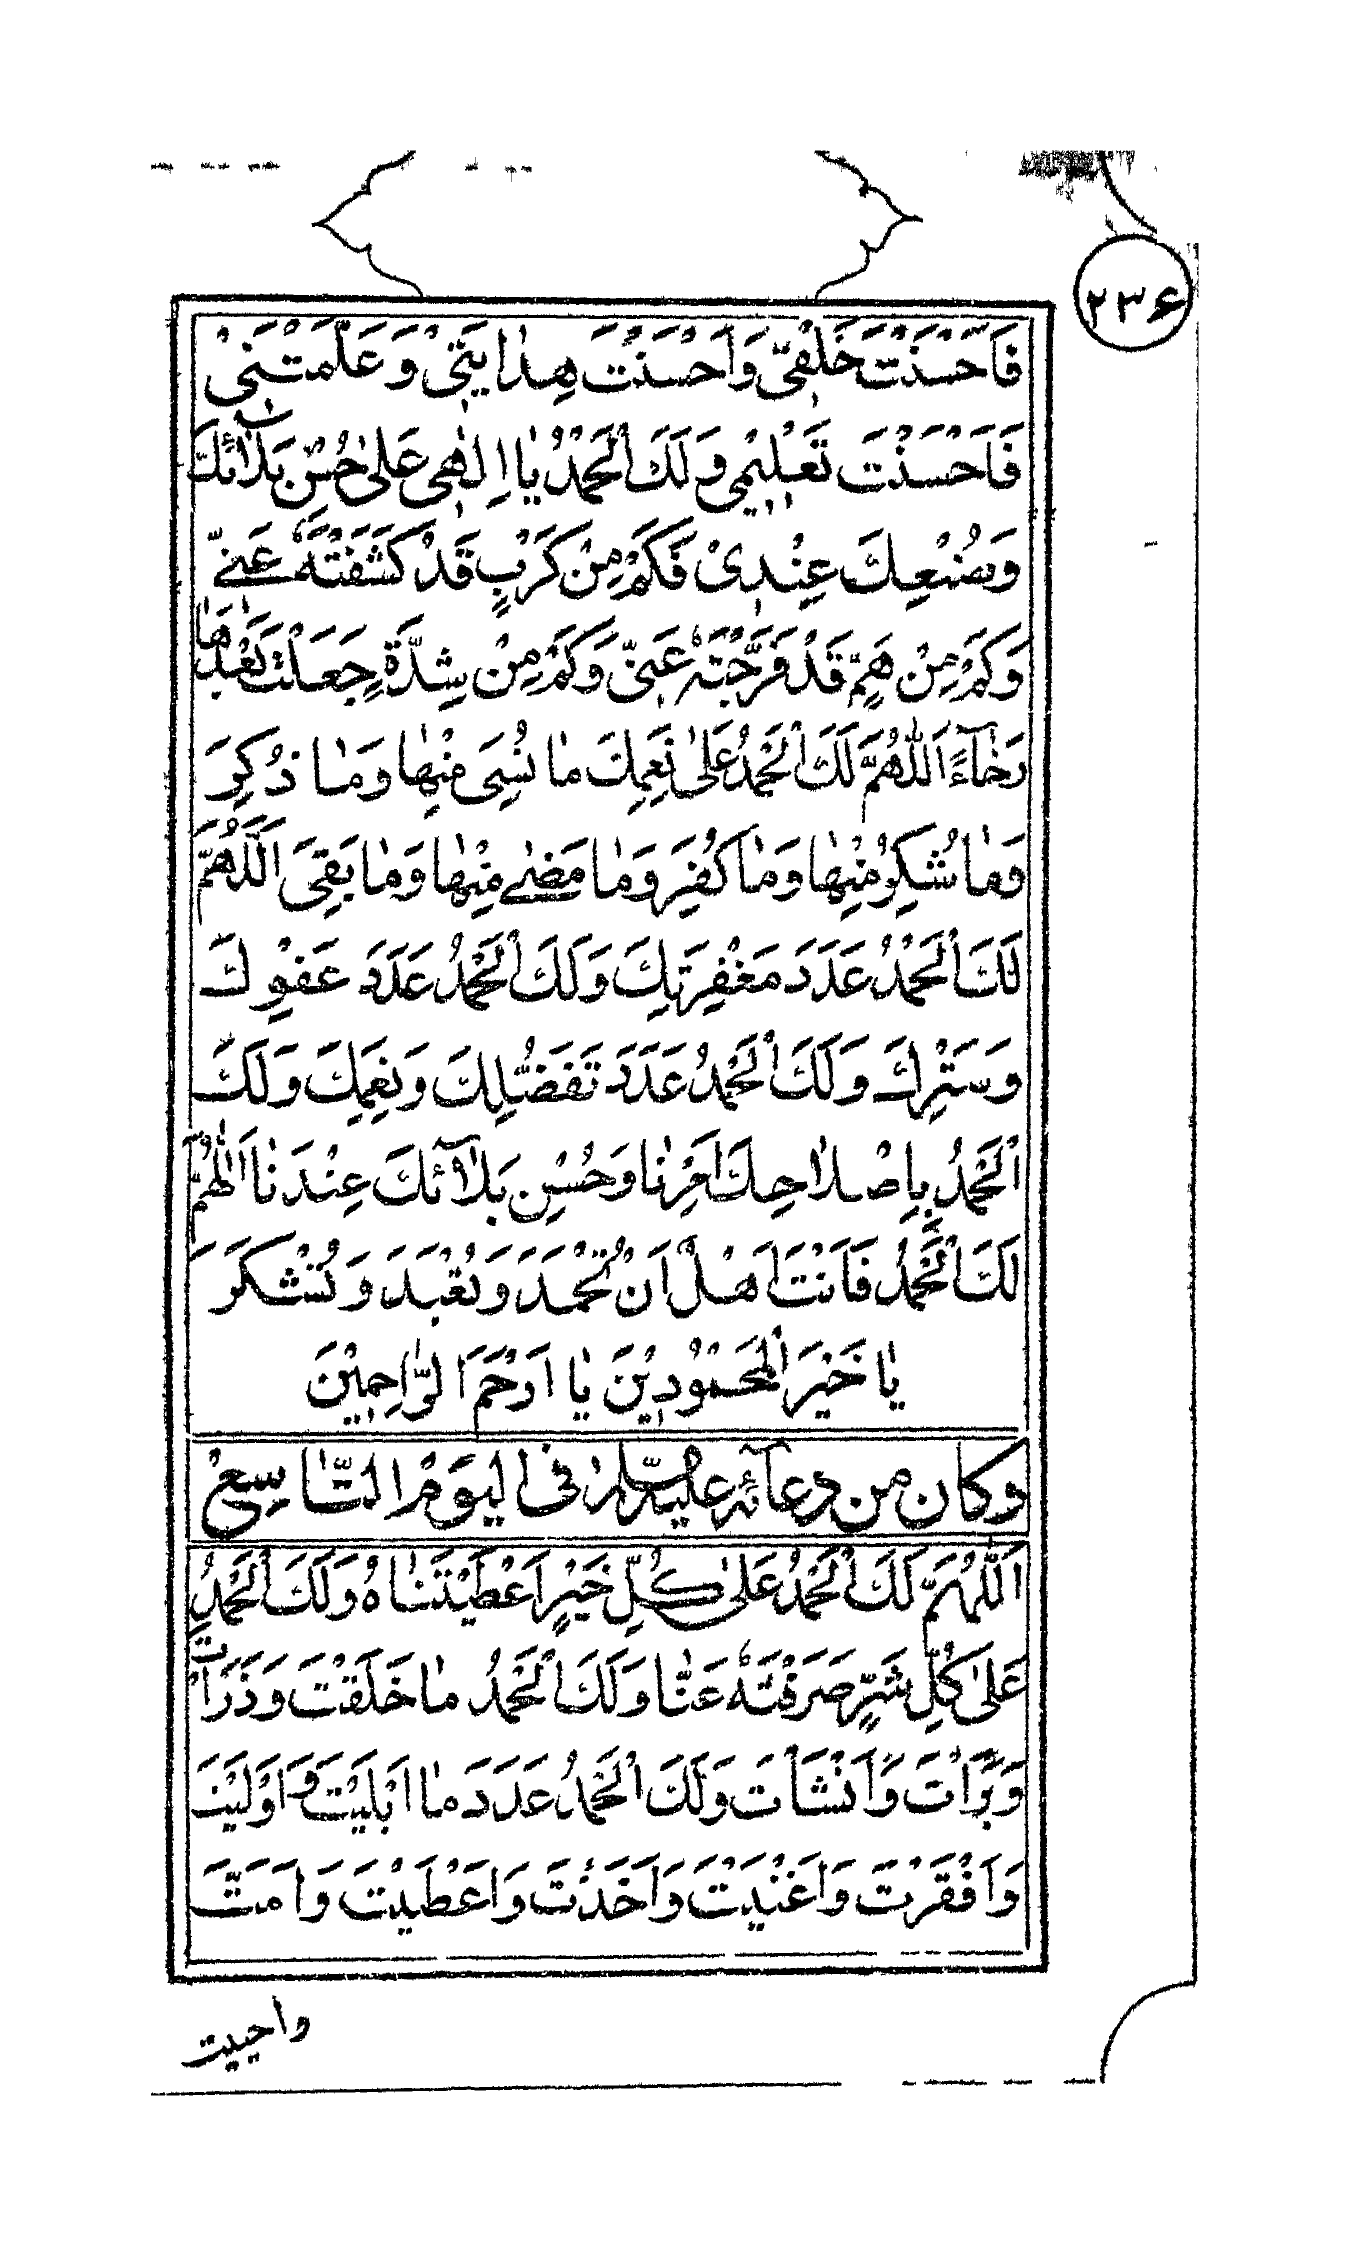 ۲۳۶
فَاَحْسَنْتَ خَلْقِیْ وَاَحْسَنْتَ هِدٰایَتِیْ وَ عَلَّمْتَنِیْ
فَاَحْسَنْتَ تَعْلِیْمِی وَ لَكَ الْحَمْدُ یٰا اِلٰهِی عَلیٰ حُسْنِ بَلٰائِكَ
وَصُنْعِكَ عِنْدِیْ فَكَمْ مِنْ كَرْبٍ قَدْ كَشَفْتَهٗ عَنّے
وَكَمْ مِنْ هَمٍّ قَدْ فَرَّجْتَهٗ عَنِّی وَكَمْ مِنْ شِدَّةٍ جَعَلْتَ بَعْدَهٰا
رَخٰآءً اَللّٰهُمَّ لَكَ الْحَمْدُ عَلیٰ نِعَمِكَ مٰا نُسِیَ مِنْهٰا وَمٰا ذُكِرَ
وَمٰا شُكِرَ مِنْهٰا وَمٰا كُفِرَ وَمٰا مَضٰے مِنْهٰا وَمٰا بَقِیَ اَللّٰهُمَّ
لَكَ الْحَمْدُ عَدَدَ مَغْفِرَتِكَ وَلَكَ الْحَمْدُ عَدَدَ عَفْوِكَ
وَسَتْرِكَ وَلَكَ الْحَمْدُ عَدَدَ تَفَضُّلِكَ وَنِعَمِكَ وَلَكَ
الْحَمْدُ بِاِصْلٰاحِكَ اَمْرَنٰا وَحُسْنِ بَلٰآئِكَ عِنْدَنٰا اَللّٰهُمَّ
لَكَ الْحَمْدُ فَاَنْتَ اَهْلٌ اَنْ تُحْمَدَ وَتُعْبَدَ وَتُشْكَرَ
یٰا خَیْرَ الْمَحْمُوْدِیْنَ یٰا اَرْحَمَ الرّٰاحِمِیْنَ
وكان من دعآئه علیه السلام فی الیوم التاسع
اَللّٰهُمَّ لَكَ الْحَمْدُ عَلیٰ كُلِّ خَیْرٍ اَعْطَیْتَنٰاهُ وَلَكَ الْحَمْدُ
عَلیٰ كُلِّ شَرٍّ صَرَفْتَهٗ عَنّٰا وَلَكَ الْحَمْدُ مٰا خَلَقْتَ وَذَرَاْتَ
وَبَرَاْتَ وَاَنْشَاْتَ وَلَكَ الْحَمْدُ عَدَدَ مٰا اَبْلَیْتَ وَاَوْلَیْتَ
وَاَفْقَرْتَ وَاَغْنَیْتَ وَاَخَذْتَ وَاَعْطَیْتَ وَاَمَتَّ
واحییت